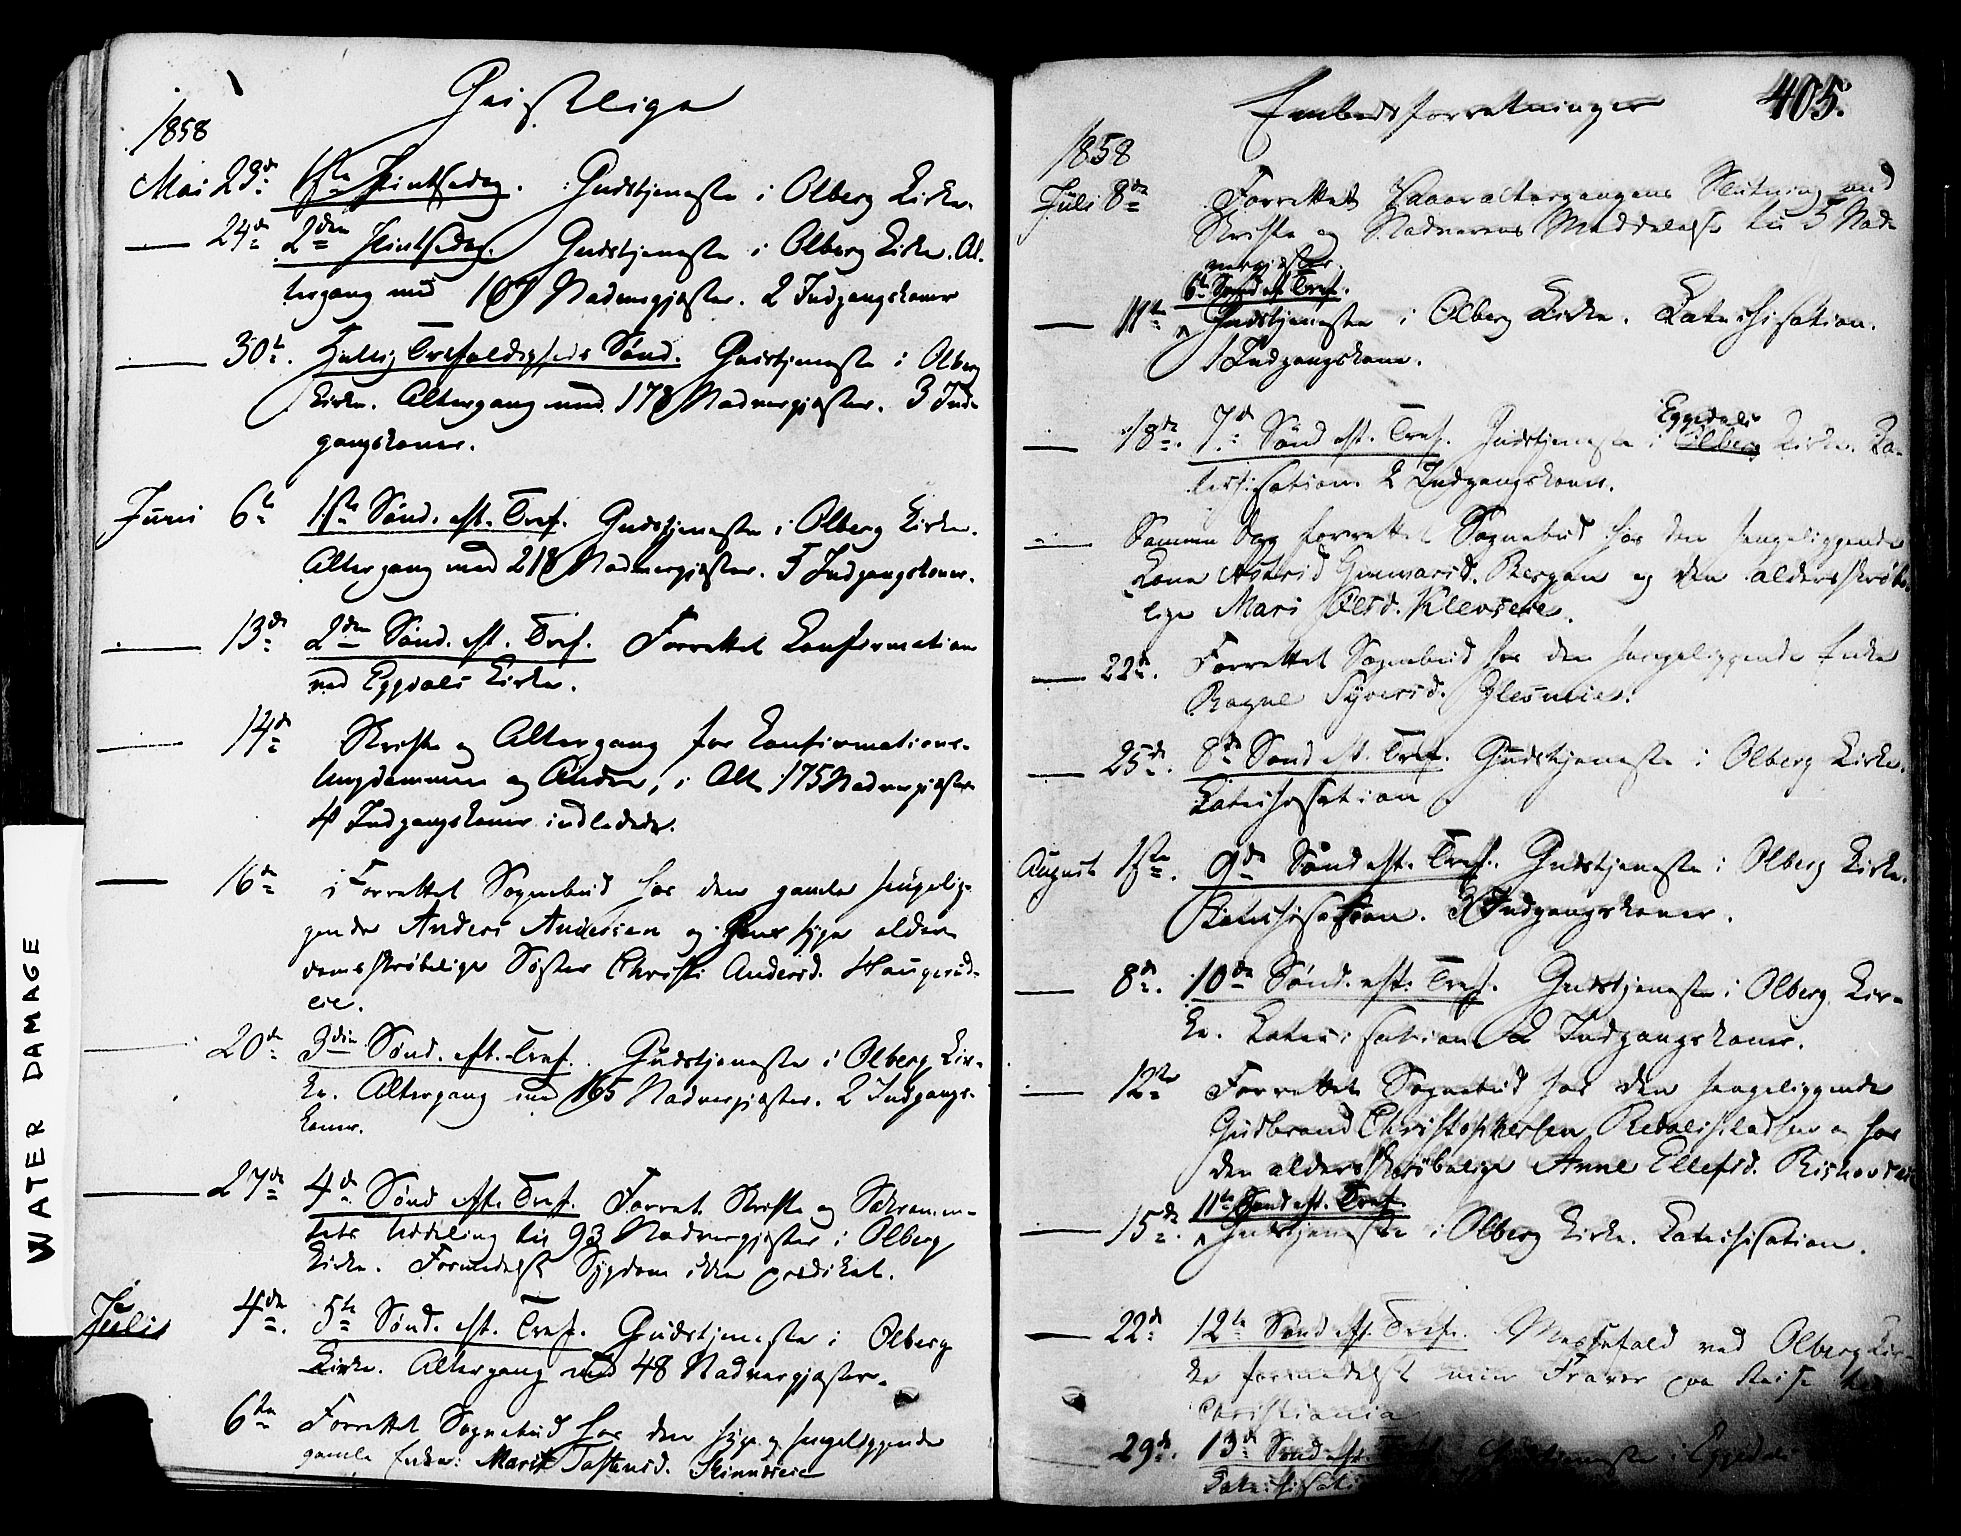 Geistlige
1858
Mai 23de 1ste Pintsedag. Gudstjeneste i Olberg Kirke.
24de 2den Pintsedag. Gudstjeneste i Olberg Kirke. Al-
tergang med Nadvergjæster. 2 Indgangskoner
30te. Hellig Trefoldigheds Sønd. Gudstjeneste i Olberg
Kirke. Altergang med 178 Nadvergjæster. 3 Ind-
gangskoner.
Juni 6te 1ste Sønd. eft. Tref. Gudstjeneste i Olberg Kirke.
Altergang med 218 Nadvergjæster. 5 Indgangskoner.
13de 2den Sønd. eft. Tref. Forrettet Confirmation
ved Eggdals Kirke.
14de Skrifte og Altergang for Confirmations-
ungdommen og Andre, i Alt 175 Nadvergjæster
4 Indgangskoner indledede.
16de Forrettet Sognebud hos den gamle sengelig-
gende Anders Andersen og hans syge alder-
domsskrøbelige Søster Christi Andersd. Haugerud-
eie.
20de 3die Sønd. eft. Tref. Gudstjeneste i Olberg Kir-
ke. Altergang med 165 Nadvergjæster. 2 Indgangs-
koner.
27de 4de Sønd eft. Tref. Forret. Skrifte og Sakramen-
tets Uddeling til 93 Nadvergjæster i Olberg
Kirke. Formedelst Sygdom ikke prediket.
Juli 4de. 5te Sønd. eft. Tref. Gudstjeneste i Olberg
Kirke. Altergang med 48 Nadvergjæster.
6te Forrettet Sognebud hos den syge og sengeliggende
gamle Enke: Marit Tostensd.
WATER DAMAGE
Embedsforretninger 405.
1858
Juli 8de Forrettet Vaaraltergangens Slutning med
Skrifte og Nadverens Meddelelse til 5 Nad-
vergjæster.
6te Sønd. eft. Tref.
11te Gudstjeneste i Olberg Kirke. Katechisation.
1 Indgangskone.
Eggedals
18de. 7de Sønd eft. Tref. Gudstjeneste i Olberg Kirke. Ka-
techisation. 2 Indgangskoner.
Samme Dag forrettet Sognebud hos den sengeliggende
Kone Astrid Gunnarsd. Bergan og den aldersskrøbe-
lige Mari Olsd.
22de. Forrettet Sognebud hos den sengeliggende Enke
Ragne Syversd. Glesneeie.
25de. 8de Sønd eft. Tref. Gudstjeneste i Olberg Kirke.
Katechisation
August 1ste. 9de Sønd eft. Tref. Gudstjeneste i Olberg Kirke.
Katechisation. 3 Indgangskoner.
8de. 10de Sønd. eft. Tref. Gudstjeneste i Olberg Kir-
ke. Katechisation 2 Indgangskoner.
12te Forrettet Sognebud hos den sengeliggende
Gudbrand Christophersen og hos
den aldersskrøbelige Anne Ellefsd.
11te Sønd eft. Tref.
15de. Gudstjeneste i Olberg Kirke. Katechisation.
22de 12te Sønd eft. Tref. Messefald ved Olberg Kir-
ke formedelst min Fravær paa Reise til
Christiania
29de. 13de Sønd eft. Tref. Gudstjeneste i Eggedals
Katechisati